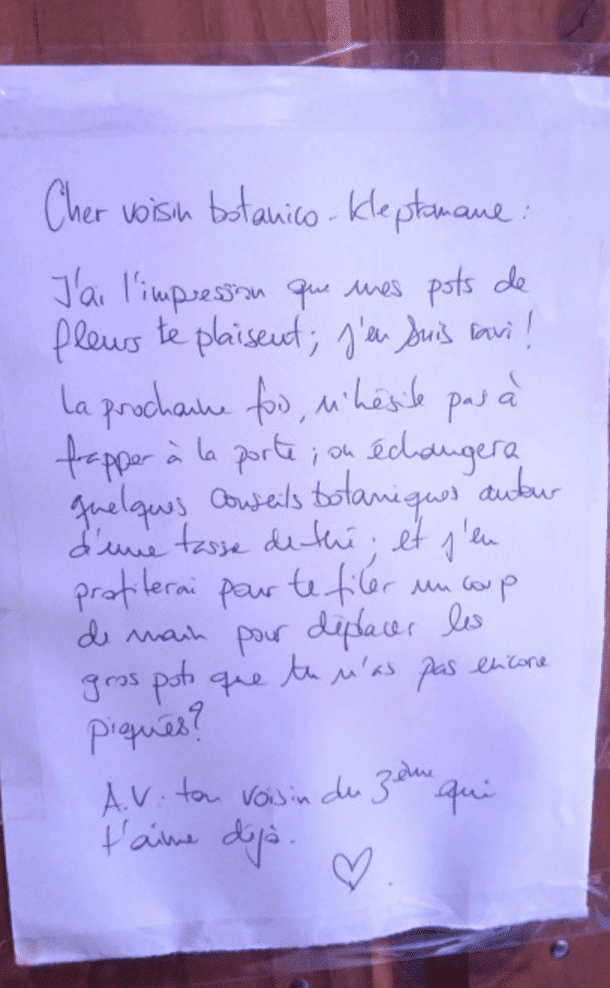 Cher voisin botanico-kleptomane :
J'ai l'impression que mes pots de
fleurs te plaisent; j'en suis ravi !
La prochaine fois, n'hésite pas à
frapper à la porte; on échangera
quelques conseils botaniques autour
d'une tasse de thé; et j'en
profiterai pour te filer un coup
de main pour déplacer les
gros pots que tu n'as pas encore
piqués?
A.V. ton voisin du 3ème qui
t'aime déjà.